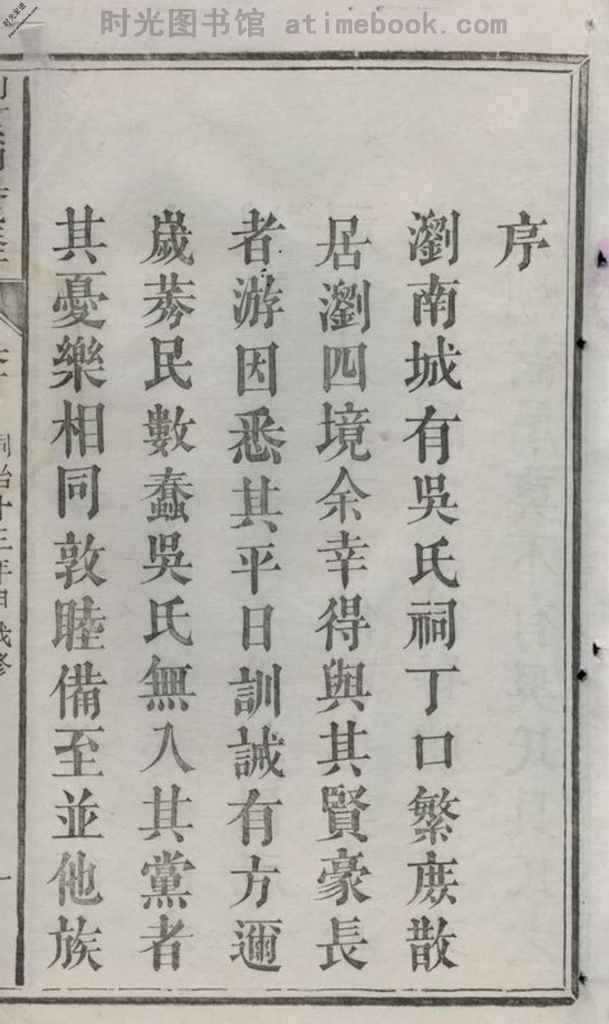 时光图书馆 atimebook.com
序
瀏南城有吳氏祠丁口繁庶散
居瀏四境余幸得與其賢豪長
者游因悉其平日訓誡有方邇
歲莠民數蠢吳氏無入其黨者
其憂樂相同敦睦備至並他族
同治十三年甲戌修